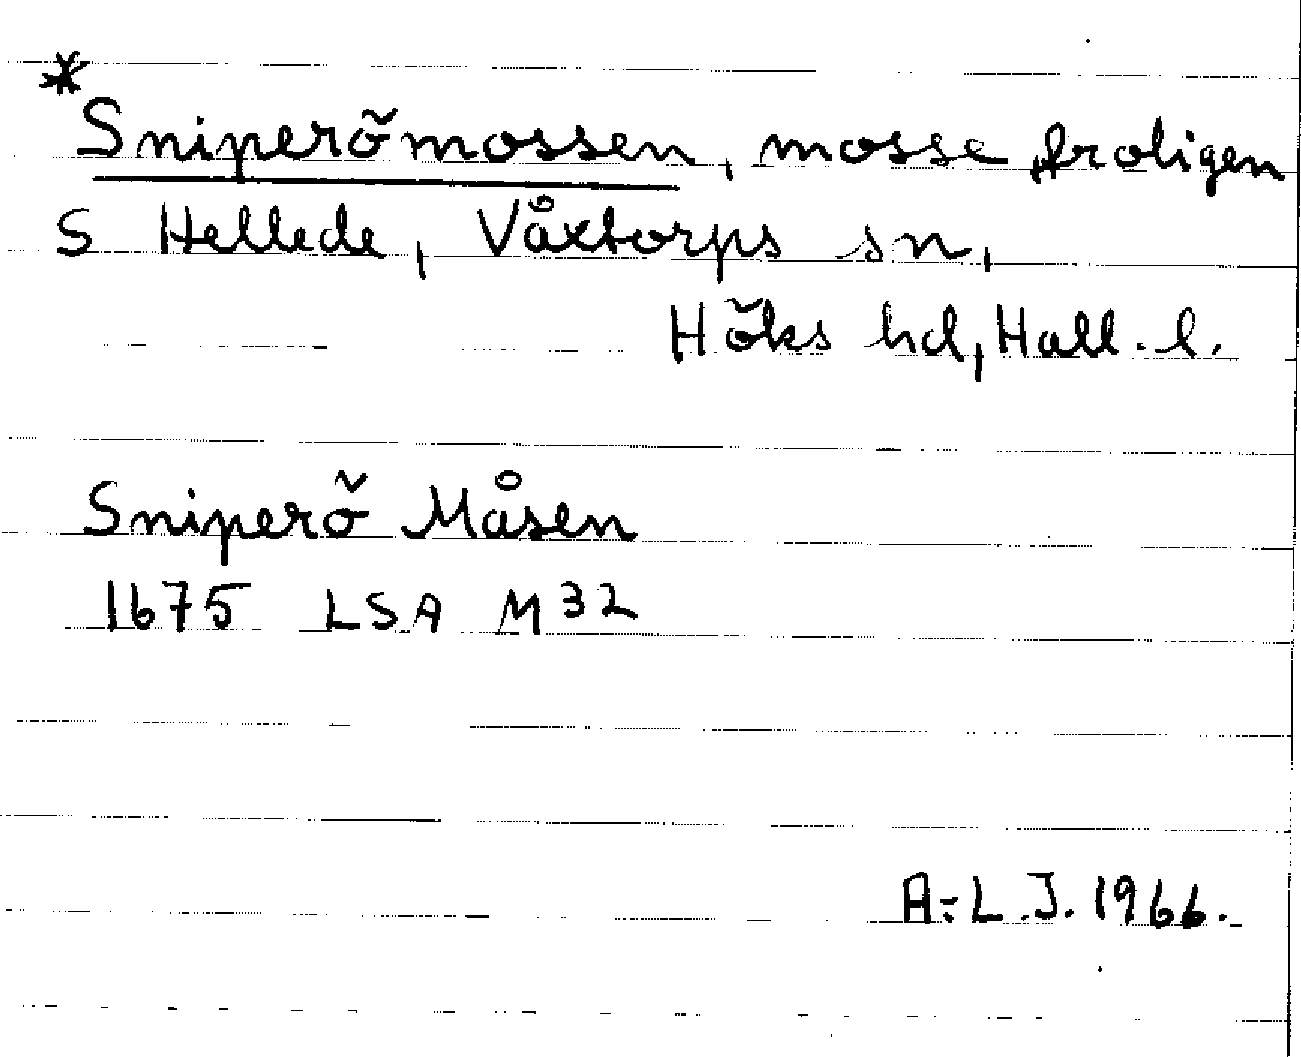 *Sniperömossen, mosse troligen
S Hellede, Våxtorps sn,
Höks hd, Hall. l.
Sniperö Måsen
1675 LSA M32
A-L.J. 1966.